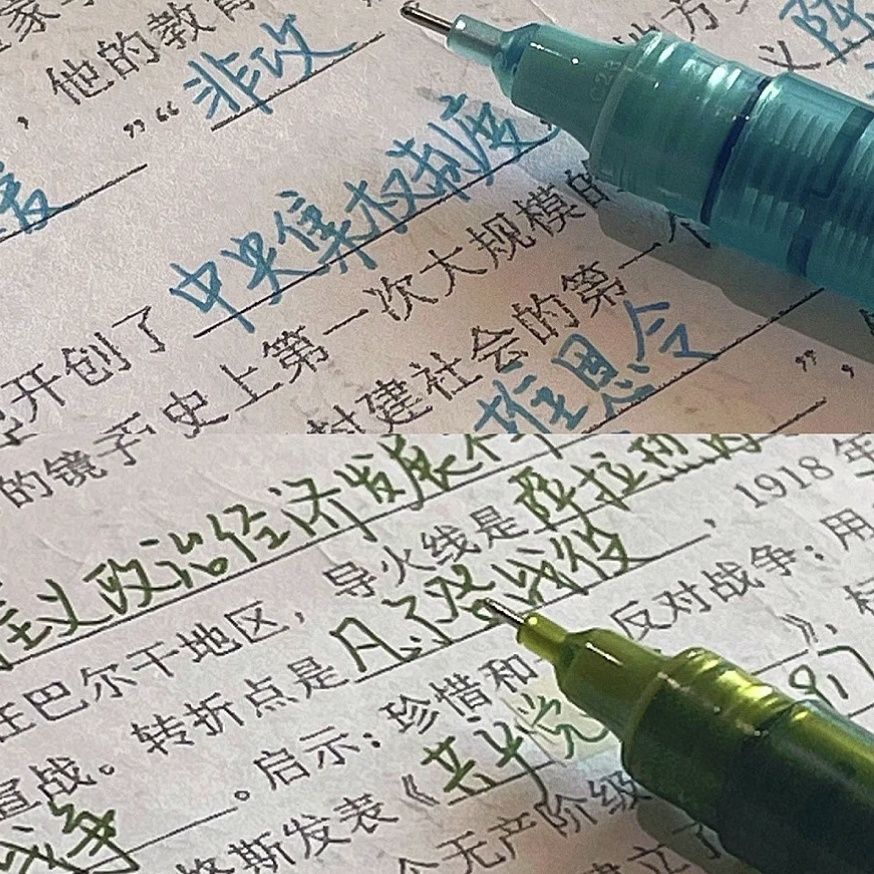 ，他的教育
”“非攻
中央集权制度
开创了
史上第一次大规模的
的镜子
封建社会的第一个
推恩令
”，
主义政治经济发展不
在巴尔干地区，导火线是萨拉热
，1918年
转折点是凡尔登战役
反对战争；用
宣战。
。启示：珍惜和
战争
格斯发表《共产党
》，
个无产阶级
建立了